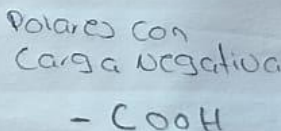 Polares con
Carga Negativa
- COOH